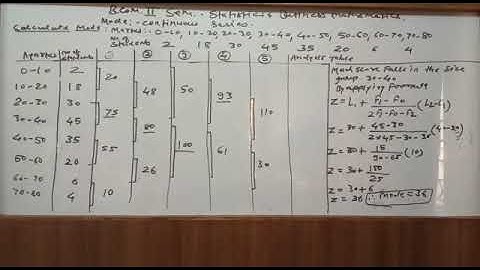 BCom II Sem. - Statistics Business Mathematics
Mode:- Continuous Series
Calculate Mode: Marks: 0-10, 10-20, 20-30, 30-40, 40-50, 50-60, 60-70, 70-80
No. of Students 2 18 30 45 35 20 6 4
Marks No. of Students ① ② ③ ④ ⑤ Analysis Table
0-10 2
20
10-20 18 48 50
20-30 30 75 93
30-40 45 80 110
40-50 35 55 100 61
50-60 20 26 30
60-70 6
10
70-80 4
Mode falls in the
group 30-40
By applying Formula
Z = L1 + F1-F0 / 2F1-F0-F2 (L2-L1)
Z = 30 + 45-30 / 2×45-30-35 (40-30)
Z = 30 + 15 / 90-65 (10)
Z = 30 + 150 / 25
Z = 30+6
Z = 36 ∴ Mode = 36